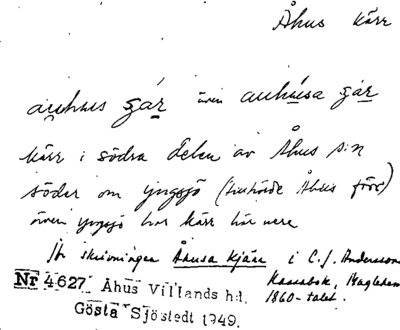 Åhus kärr
auhus gár även auhúsa gár
kärr i södra delen av Åhus s:n
söder om yngsjö (tillhörde Åhus förr)
även yngsjö har kärr här nere
Jfr skrivningen Åhusa Kjärr i C.J. Andersson
Kassabok, Maglehem
1860-talet.
Nr 4627 Åhus Villands hd.
Gösta Sjöstedt 1949.